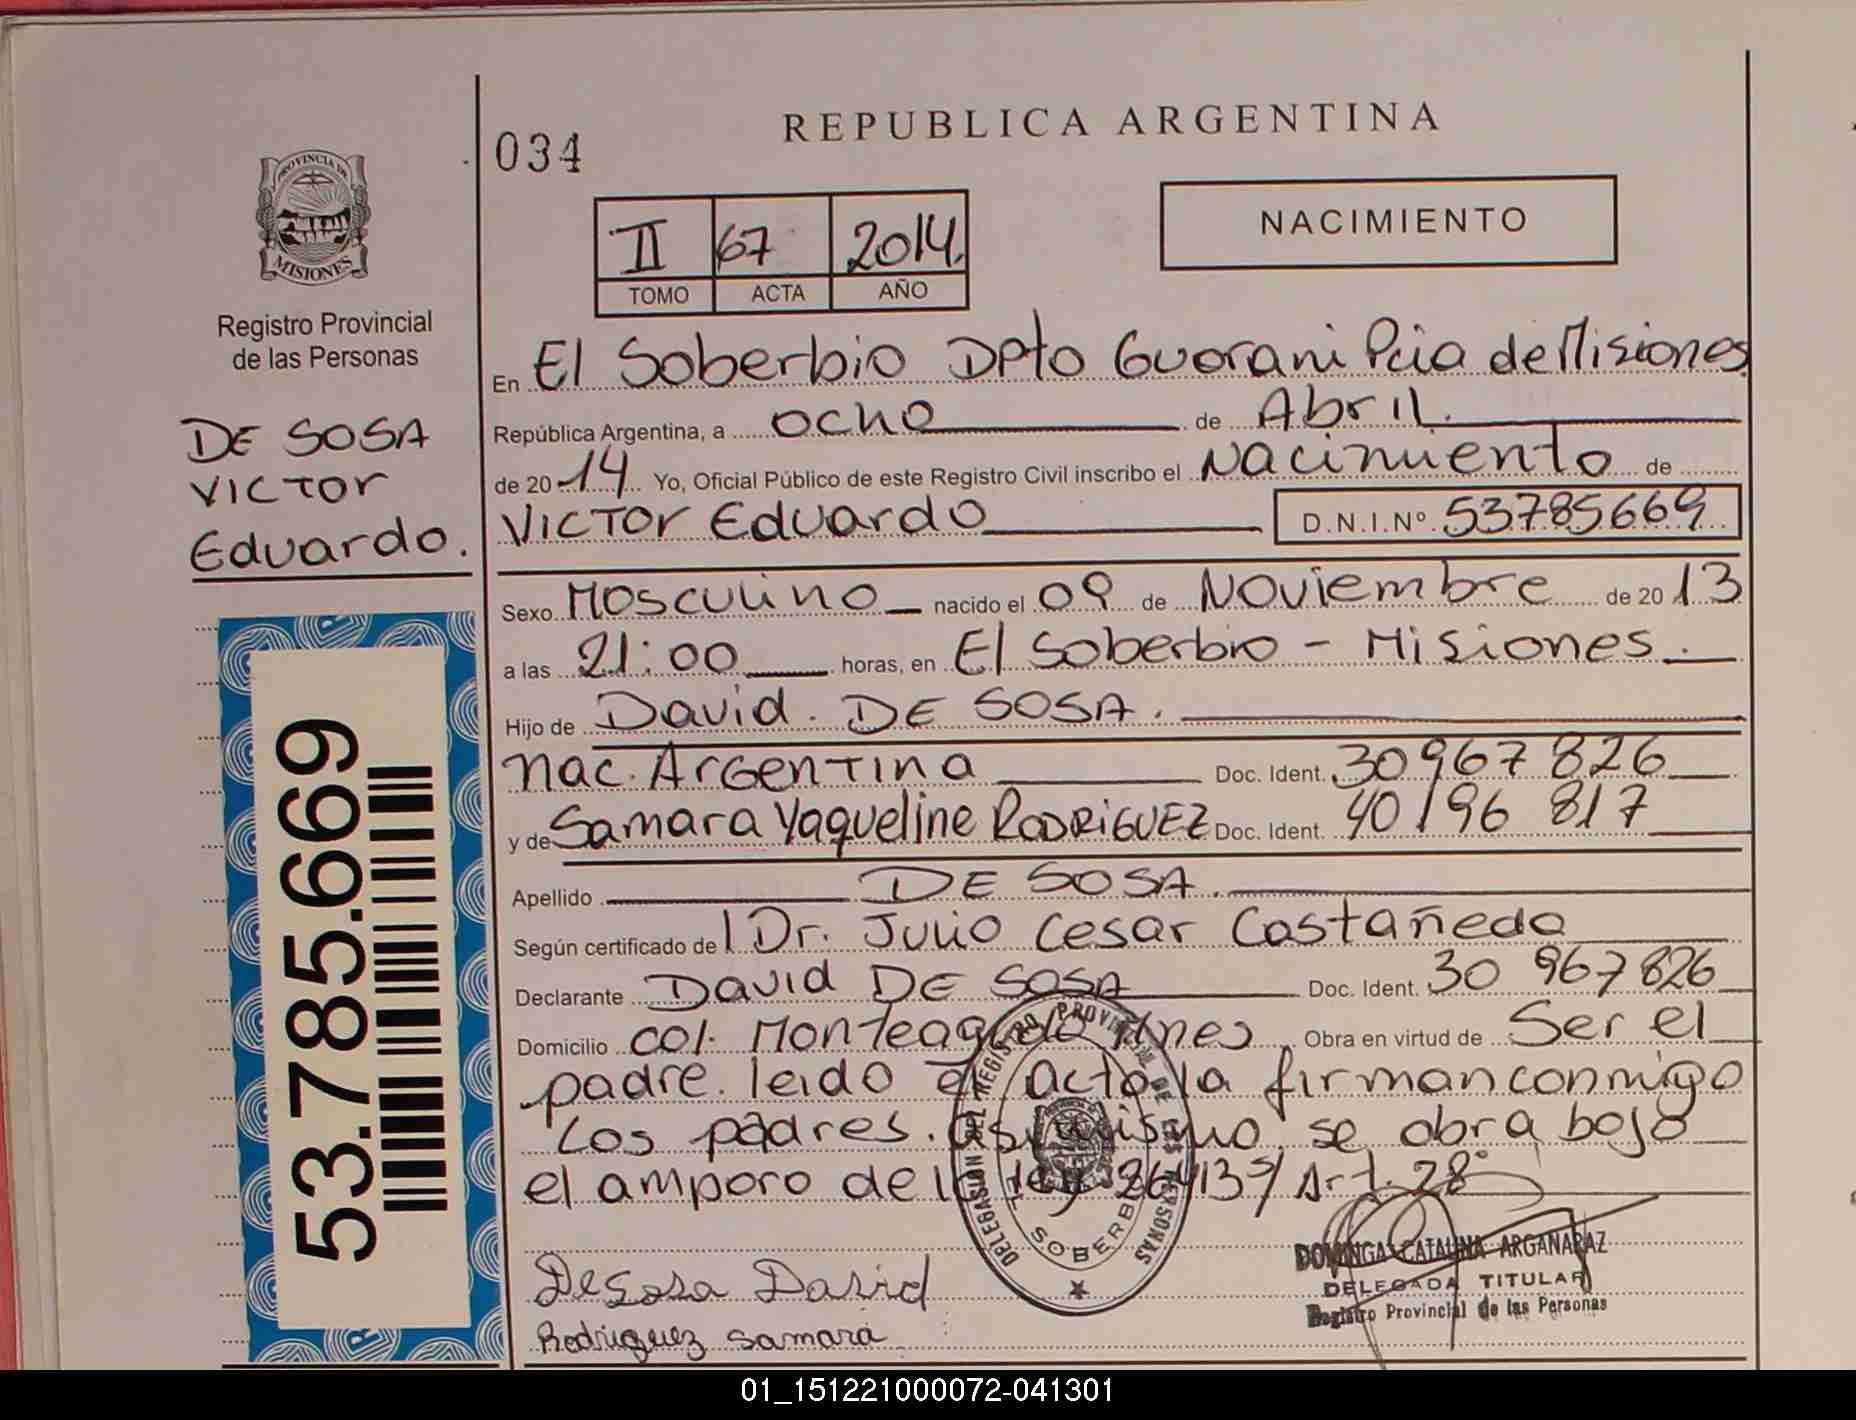 REPUBLICA ARGENTINA
034
NACIMIENTO
II 67 2014.
TOMO ACTA AÑO
PROVINCIA DE
MISIONES
Registro Provincial
de las Personas
DE SOSA
VICTOR
Eduardo.
53.785.669
En El Soberbio Dpto Guarani Pcia de Misiones
República Argentina, a ocho de Abril.
de 2014 Yo, Oficial Público de este Registro Civil inscribo el Nacimiento de
VICTOR Eduardo D.N.I.Nº 53785669
Sexo Masculino nacido el 09 de Noviembre de 2013
a las 21:00 horas, en El Soberbio - Misiones.
Hijo de David. DE SOSA.
nac. Argentina Doc. Ident. 30967 826
y de Samara Yaqueline RODRIGUEZ Doc. Ident. 40196 817
Apellido DE SOSA.
Según certificado de l Dr. Julio Cesar Costañeda
Declarante David DE SOSA Doc. Ident. 30 967826
Domicilio col. Monteagudo Mnes Obra en virtud de Ser el
padre. leido el acta la firman conmigo
Los padres. Asimismo se obra bajo
el amparo de la ley 26413 Art. 28
DELEGASION DEL REGISTRO PROVINCIAL DE LAS PERSONAS
EL SOBERBIO
De Sosa David
Rodriguez Samara
DOMINGA CATALINA ARGAÑARAZ
DELEGADA TITULAR
Registro Provincial de las Personas
01_151221000072-041301